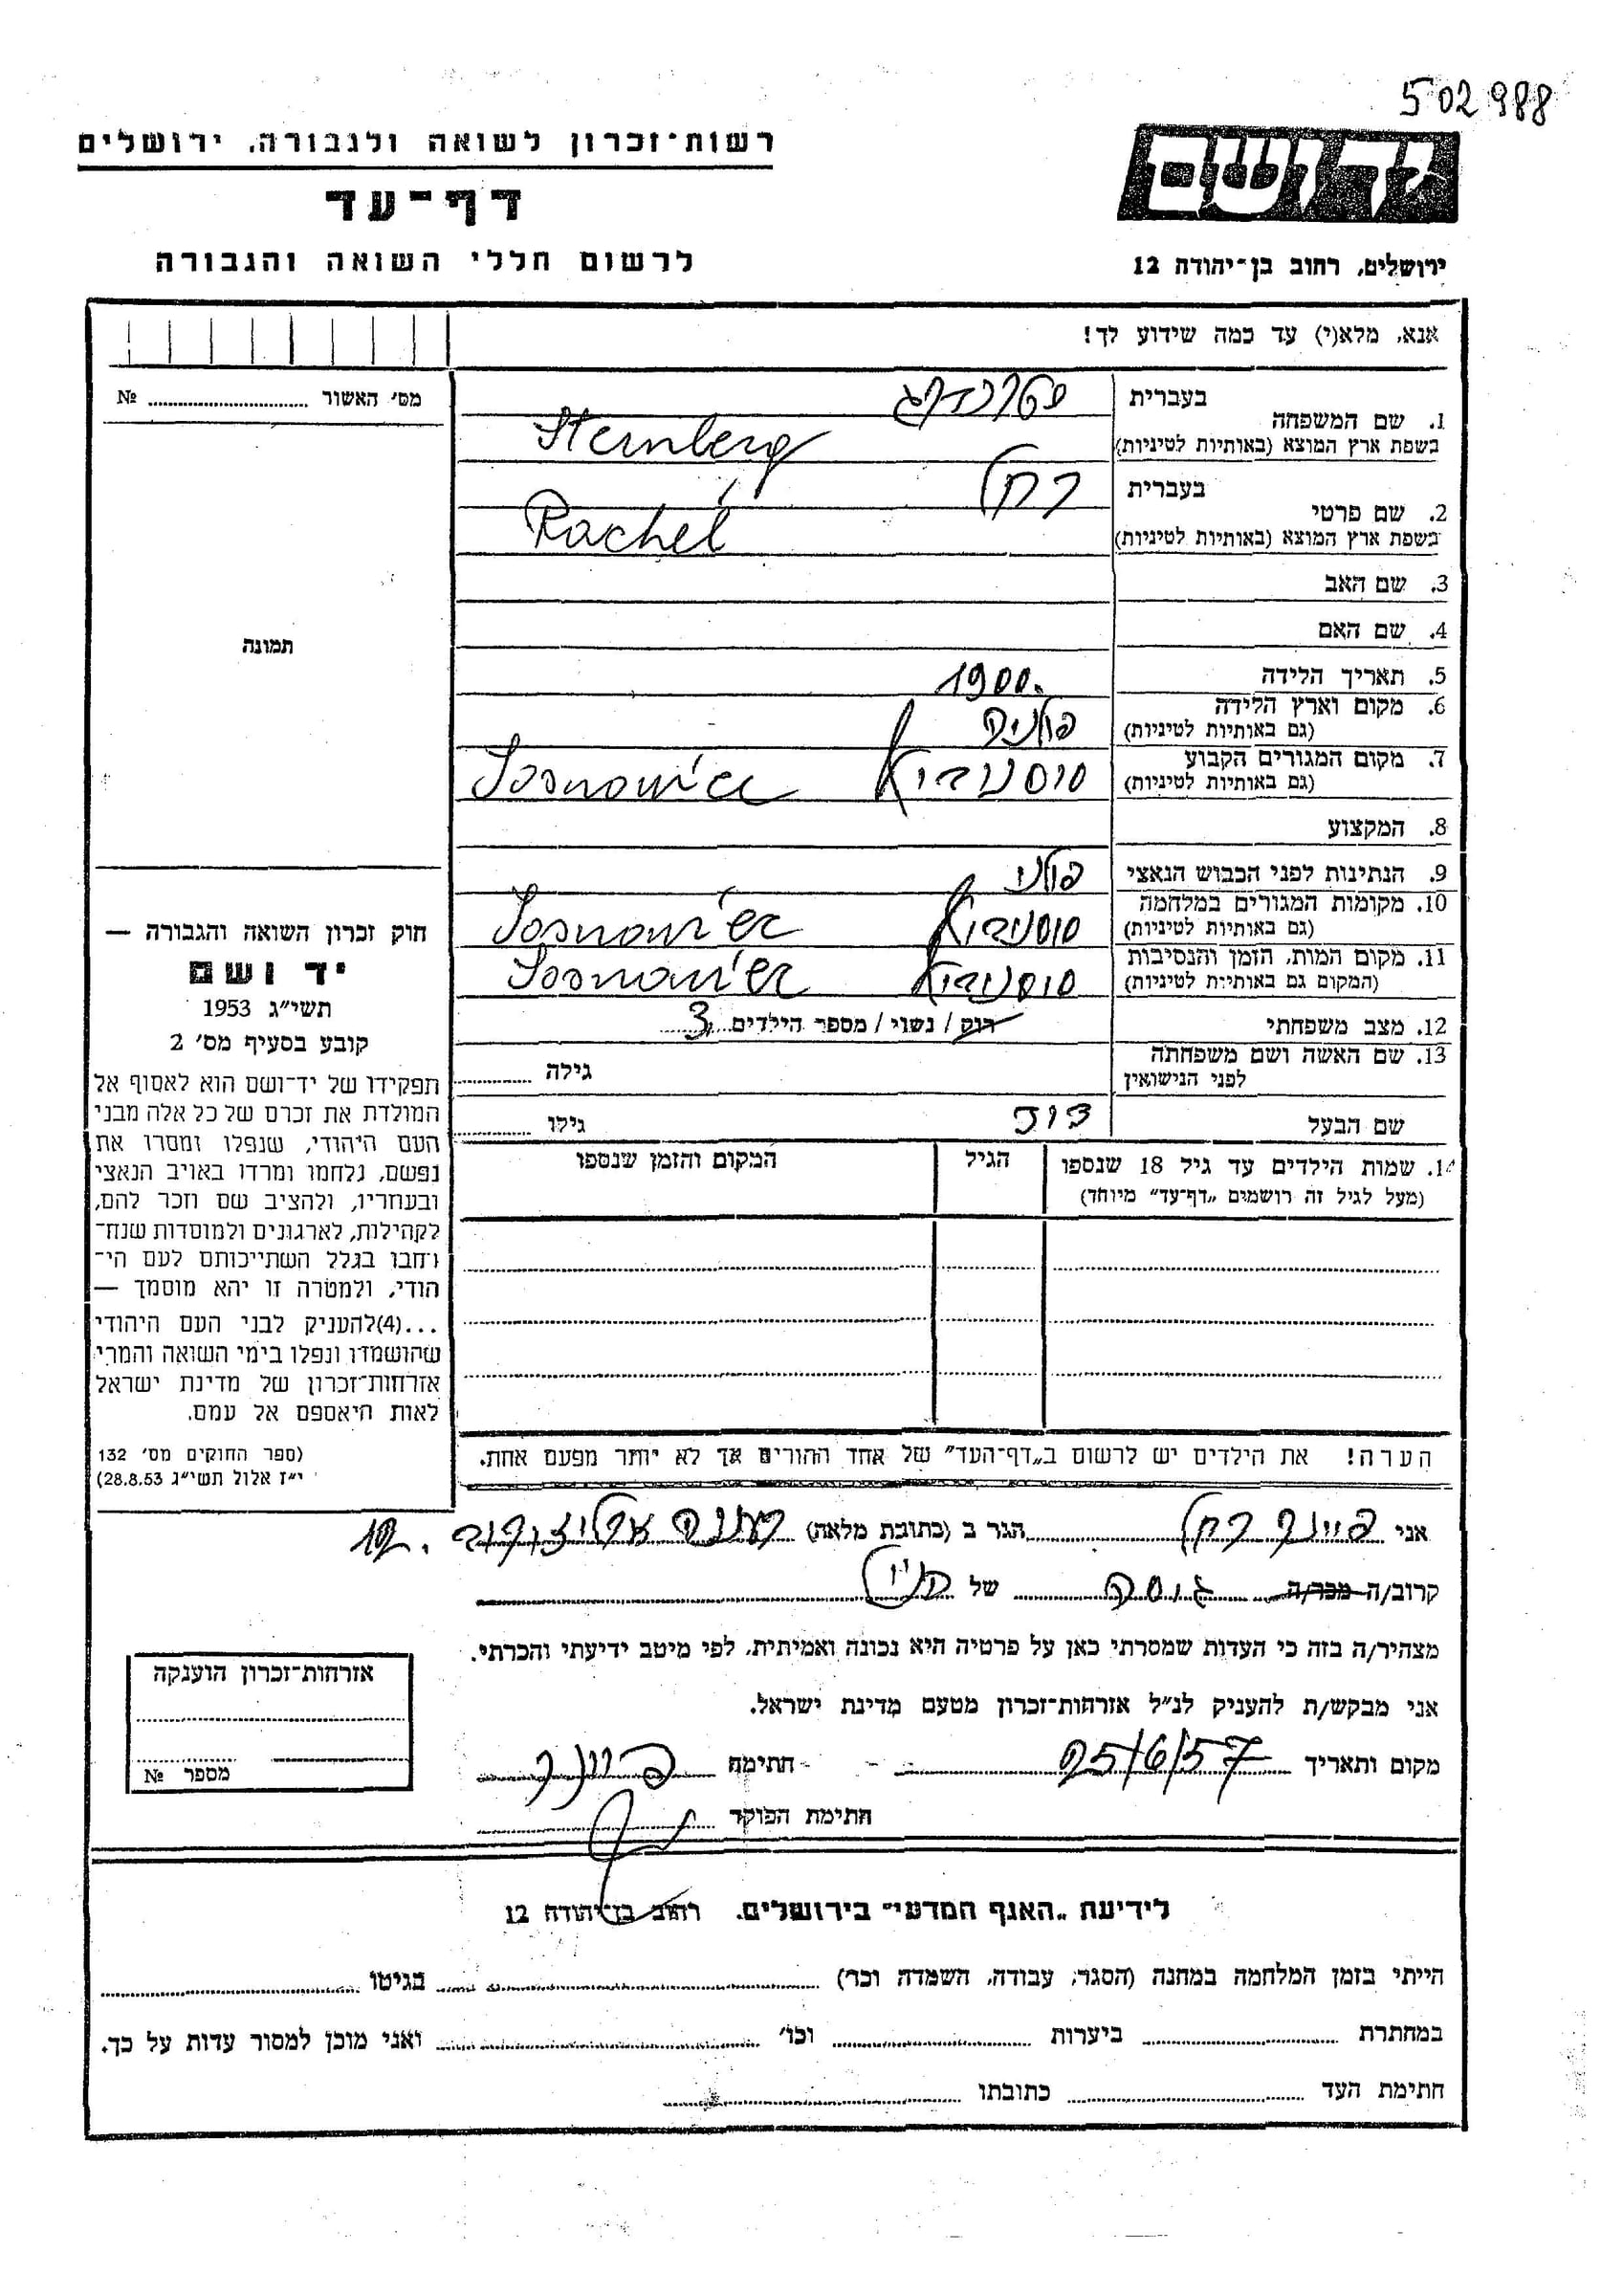 502988
רשות־זכרון לשואה ולגבורה, ירושלים
דף־עד
לרשום חללי השואה והגבורה
ידושם
ירושלים, רחוב בן־יהודה 12
אנא, מלא(י) עד כמה שידוע לך!
מס׳ האשור № 
1. שם המשפחה
בעברית שטרנברג
בשפת ארץ המוצא (באותיות לטיניות) Sternberg
2. שם פרטי
בעברית רחל
בשפת ארץ המוצא (באותיות לטיניות) Rachel
3. שם האב
4. שם האם
5. תאריך הלידה 1900.
6. מקום וארץ הלידה פולניה
(גם באותיות לטיניות)
7. מקום המגורים הקבוע סוסנוביץ Sosnowiec
(גם באותיות לטיניות)
8. המקצוע
9. הנתינות לפני הכבוש הנאצי פולני
10. מקומות המגורים במלחמה סוסנוביץ Sosnowiec
(גם באותיות לטיניות)
11. מקום המות, הזמן והנסיבות סוסנוביץ Sosnowiec
(המקום גם באותיות לטיניות)
12. מצב משפחתי רוק / נשוי / מספר הילדים 3
13. שם האשה ושם משפחתה גילה
לפני הנישואין
שם הבעל דוד גילו
14. שמות הילדים עד גיל 18 שנספו הגיל המקום והזמן שנספו
(מעל לגיל זה רושמים „דף־עד״ מיוחד)
הערה! את הילדים יש לרשום ב„דף־העד״ של אחד ההורים אך לא יותר מפעם אחת.
תמונה
חוק זכרון השואה והגבורה —
יד ושם
תשי״ג 1953
קובע בסעיף מס׳ 2
תפקידו של יד־ושם הוא לאסוף אל
המולדת את זכרם של כל אלה מבני
העם היהודי, שנפלו ומסרו את
נפשם, נלחמו ומרדו באויב הנאצי
ובעוזריו, ולהציב שם וזכר להם,
לקהילות, לארגונים ולמוסדות שנח־
רחבו בגלל השתייכותם לעם הי־
הודי, ולמטרה זו יהא מוסמך —
...(4)להעניק לבני העם היהודי
שהושמדו ונפלו בימי השואה והמרי
אזרחות־זכרון של מדינת ישראל
לאות היאספם אל עמם.
(ספר החוקים מס׳ 132
י״ז אלול תשי״ג 28.8.53)
אני רחל הגר ב (כתובת מלאה)
קרוב/ה מכר/ה גיסה של
מצהיר/ה בזה כי העדות שמסרתי כאן על פרטיה היא נכונה ואמיתית, לפי מיטב ידיעתי והכרתי.
אני מבקש/ת להעניק לנ״ל אזרחות־זכרון מטעם מדינת ישראל.
מקום ותאריך 25/6/57 חתימה
חתימת הפוקד
אזרחות־זכרון הוענקה
מספר №
לידיעת „האגף המדעי״ בירושלים, רחוב בן־יהודה 12
הייתי בזמן המלחמה במחנה (הסגר, עבודה, השמדה וכד׳) בגיטו
במחתרת ביערות וכו׳ ואני מוכן למסור עדות על כך.
חתימת העד כתובתו